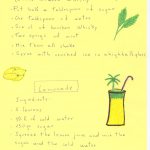 - Put half a tablespoon of sugar
- One tablespoon of water
- Six cl of bourbon whisky
- Two sprigs of mint
- Mix them all shake
- Serve with crushed ice in
Lemonade
Ingredients:
6 lemons
of cold water
sugar
Squeeze the lemon juice and mix the
sugar and the cold water